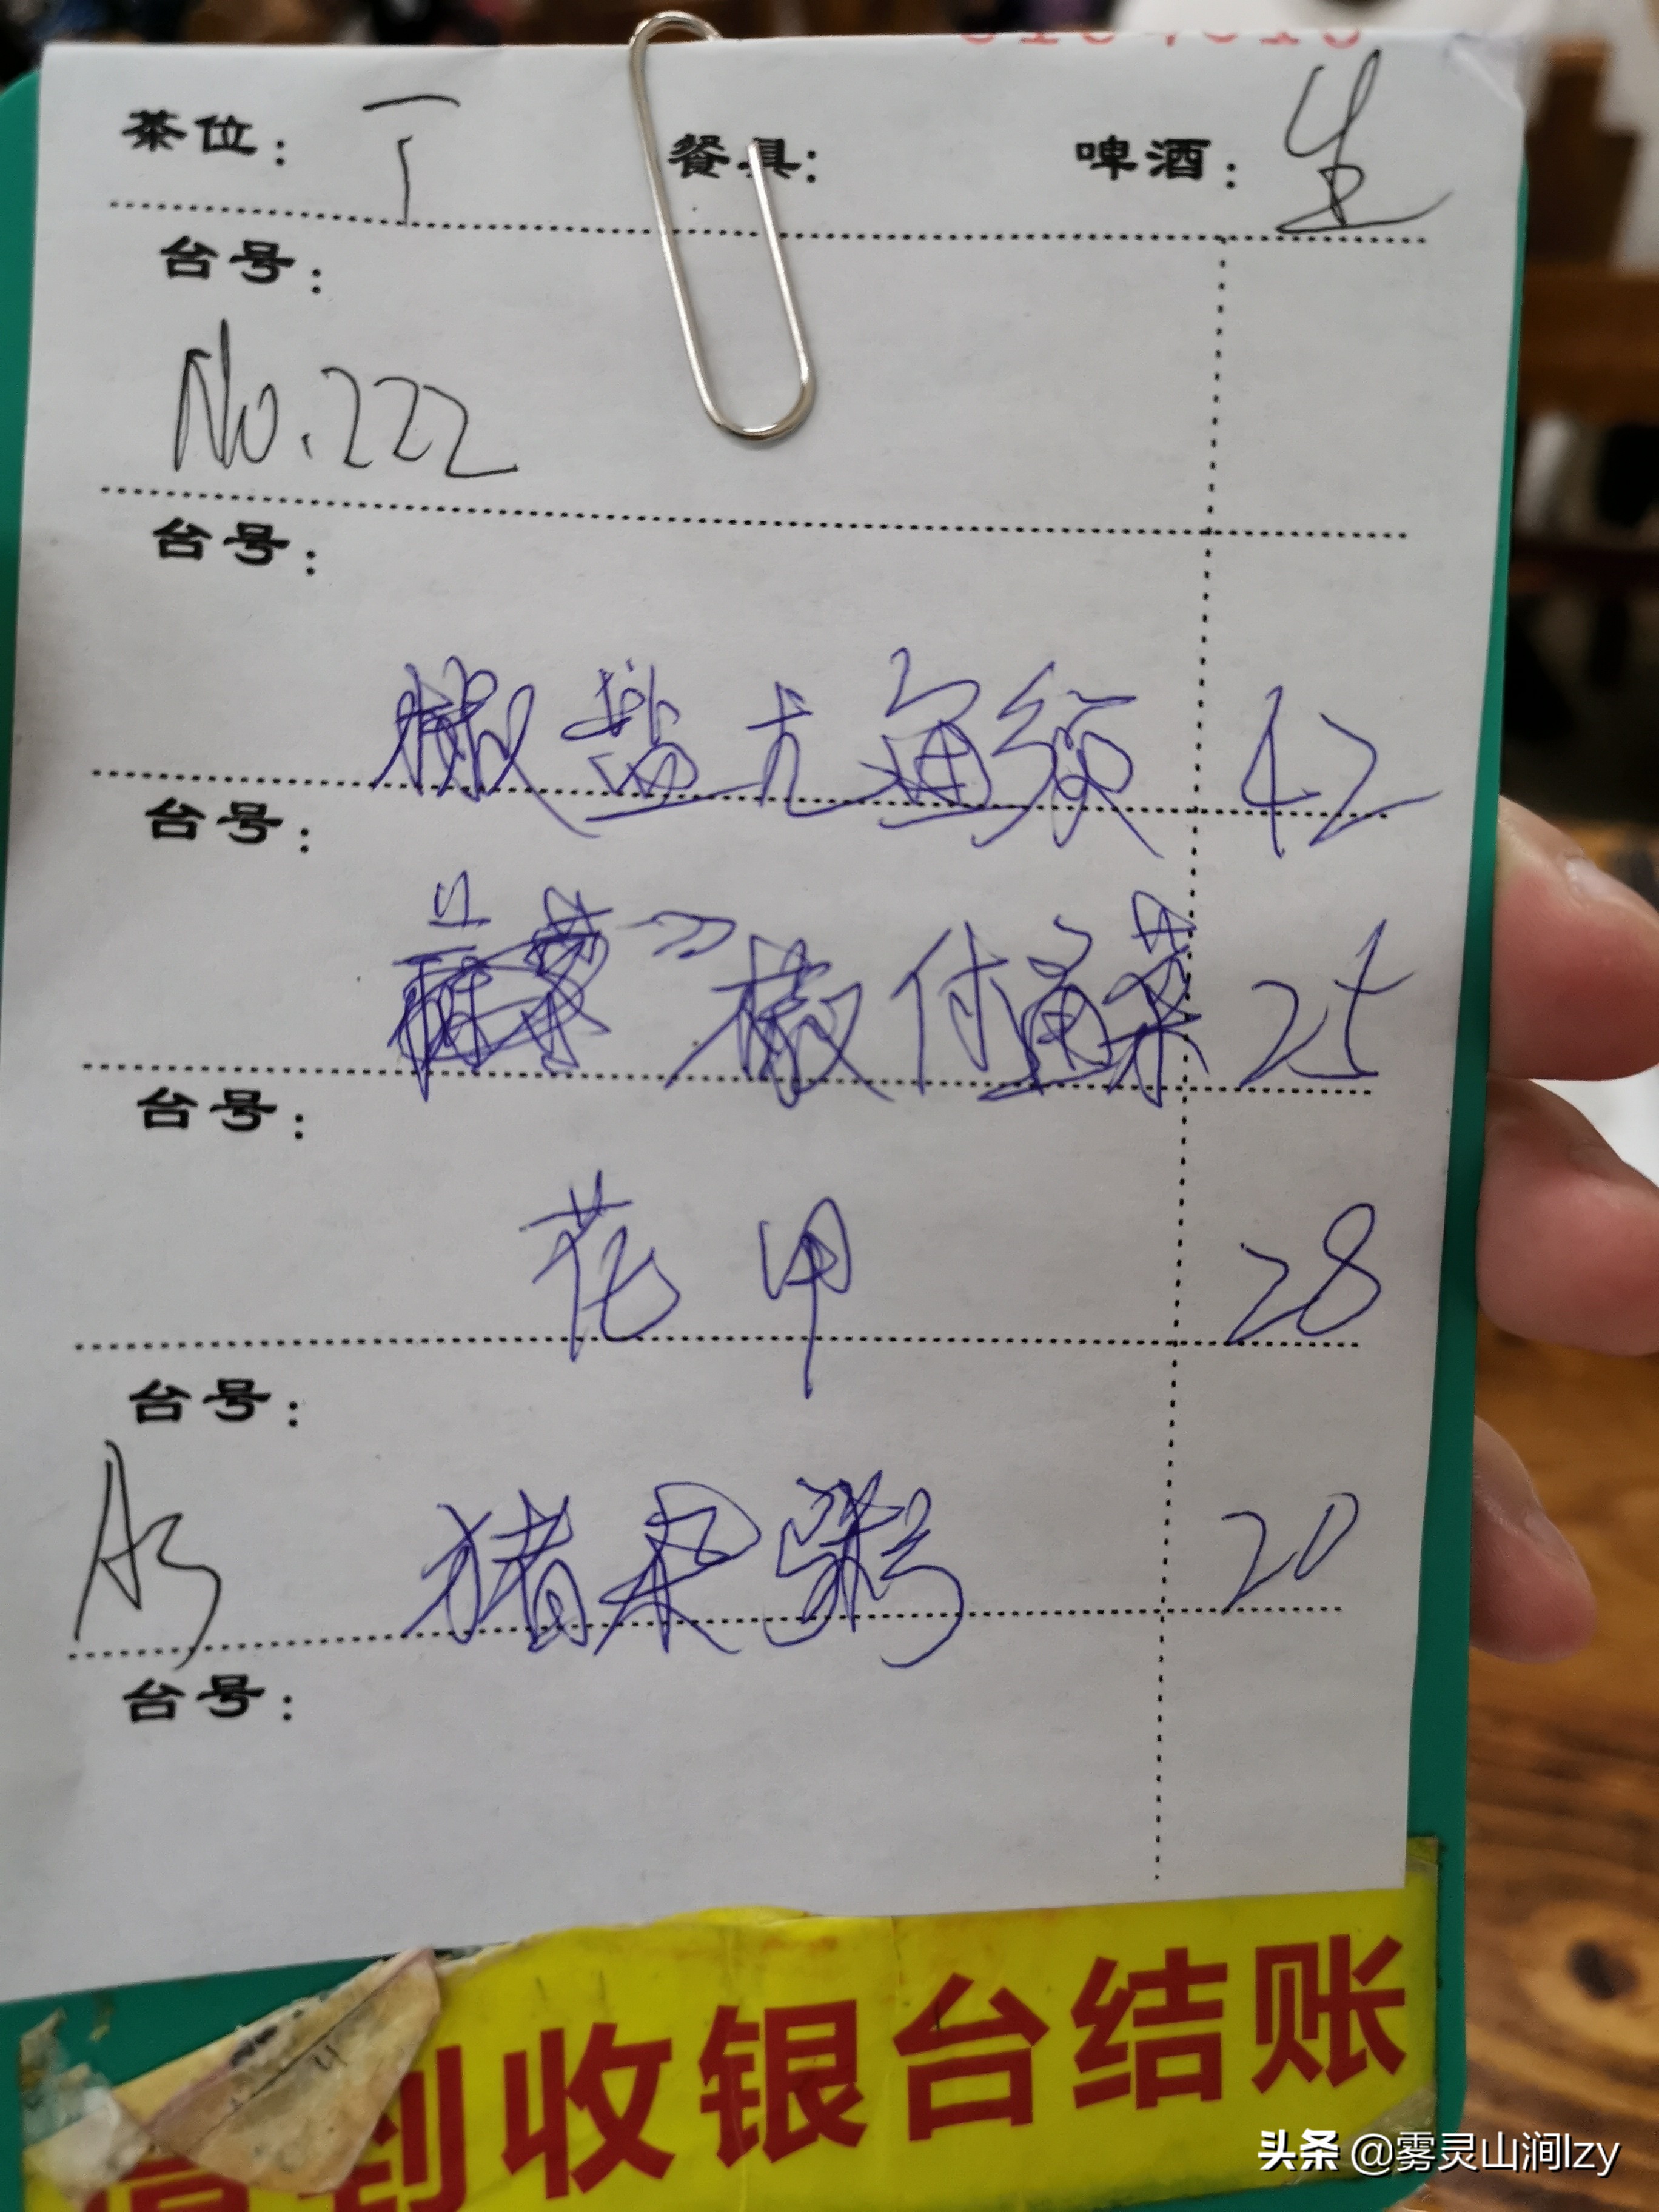 茶位： 丁 餐具： 啤酒： 生
台号：
No.222
台号：
椒盐尤鱼须 42
台号：
椒付通菜 25
台号：
花甲 28
台号：
A3 猪杂粥 20
台号：
到收银台结账
头条 @雾灵山涧lzy